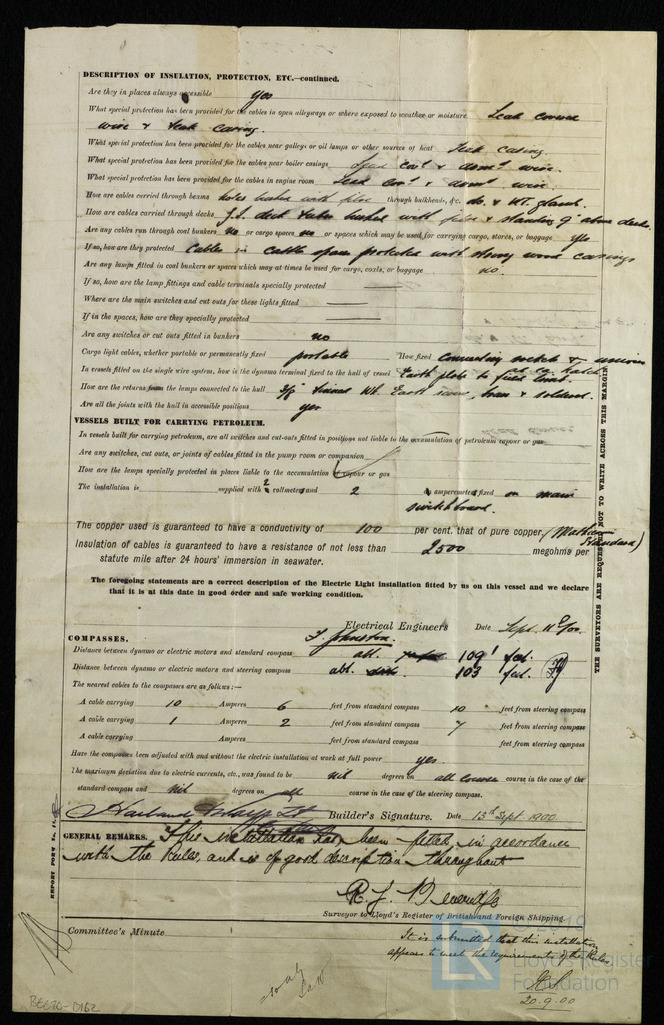 DESCRIPTION OF INSULATION, PROTECTION, ETC.—continued.
Are they in places always accessible yes
What special protection has been provided for the cables in open alleyways or where exposed to weather or moisture Lead covered
wire & teak casing.
What special protection has been provided for the cables near galleys or oil lamps or other sources of heat teak casing.
What special protection has been provided for the cables near boiler casings Lead cov.d & arm.d wire.
What special protection has been provided for the cables in engine room Lead cov.d & arm.d wire.
How are cables carried through beams holes bushed with fibre through bulkheads, &c. do. & W.T. glands.
How are cables carried through decks G.I. deck tubes bushed with fibre & standing 9" above decks.
Are any cables run through coal bunkers no or cargo spaces no or spaces which may be used for carrying cargo, stores, or baggage yes
If so, how are they protected Cables in cattle space protected with strong wood casings
Are any lamps fitted in coal bunkers or spaces which may at times be used for cargo, coals, or baggage no.
If so, how are the lamp fittings and cable terminals specially protected
Where are the main switches and cut outs for these lights fitted
If in the spaces, how are they specially protected
Are any switches or cut outs fitted in bunkers no
Cargo light cables, whether portable or permanently fixed portable How fixed connecting switch & union
at ea. hatch.
In vessels fitted on the single wire system, how is the dynamo terminal fixed to the hull of vessel Earth plate to
How are the returns from the lamps connected to the hull 3/8 tinned Wt. Earth screw, brass & soldered.
Are all the joints with the hull in accessible positions yes
VESSELS BUILT FOR CARRYING PETROLEUM.
In vessels built for carrying petroleum, are all switches and cut-outs fitted in positions not liable to the accumulation of petroleum vapour or gas
Are any switches, cut outs, or joints of cables fitted in the pump room or companion
How are the lamps specially protected in places liable to the accumulation of vapour or gas
The installation is supplied with 2 voltmeters and 2 amperemeters fixed on main
switchboard.
The copper used is guaranteed to have a conductivity of 100 per cent. that of pure copper (Mathiessen
Standard)
Insulation of cables is guaranteed to have a resistance of not less than 2500 megohms per
statute mile after 24 hours' immersion in seawater.
The foregoing statements are a correct description of the Electric Light installation fitted by us on this vessel and we declare
that it is at this date in good order and safe working condition.
Electrical Engineers Date Sept. 11th/00.
J. Johnston.
COMPASSES.
Distance between dynamo or electric motors and standard compass abt. 109' feet.
Distance between dynamo or electric motors and steering compass abt. 103' feet.
The nearest cables to the compasses are as follows:—
A cable carrying 10 Amperes 6 feet from standard compass 10 feet from steering compass
A cable carrying 1 Amperes 2 feet from standard compass 7 feet from steering compass
A cable carrying Amperes feet from standard compass feet from steering compass
Have the compasses been adjusted with and without the electric installation at work at full power yes.
The maximum deviation due to electric currents, etc., was found to be nil degrees on all courses course in the case of the
standard compass and nil degrees on all course in the case of the steering compass.
Harland & Wolff Ld Builder's Signature. Date 13th Sept 1900.
GENERAL REMARKS. This installation has been fitted in accordance
with the Rules, and is of good description throughout
R. J.
Surveyor to Lloyd's Register of British and Foreign Shipping.
Committee's Minute
It is submitted that this installation
appears to meet the requirements of the Rules.
20.9.00
THE SURVEYORS ARE REQUESTED NOT TO WRITE ACROSS THIS MARGIN.
REPORT FORM No. 13.
LR
© 2019
Lloyd's Register
Foundation